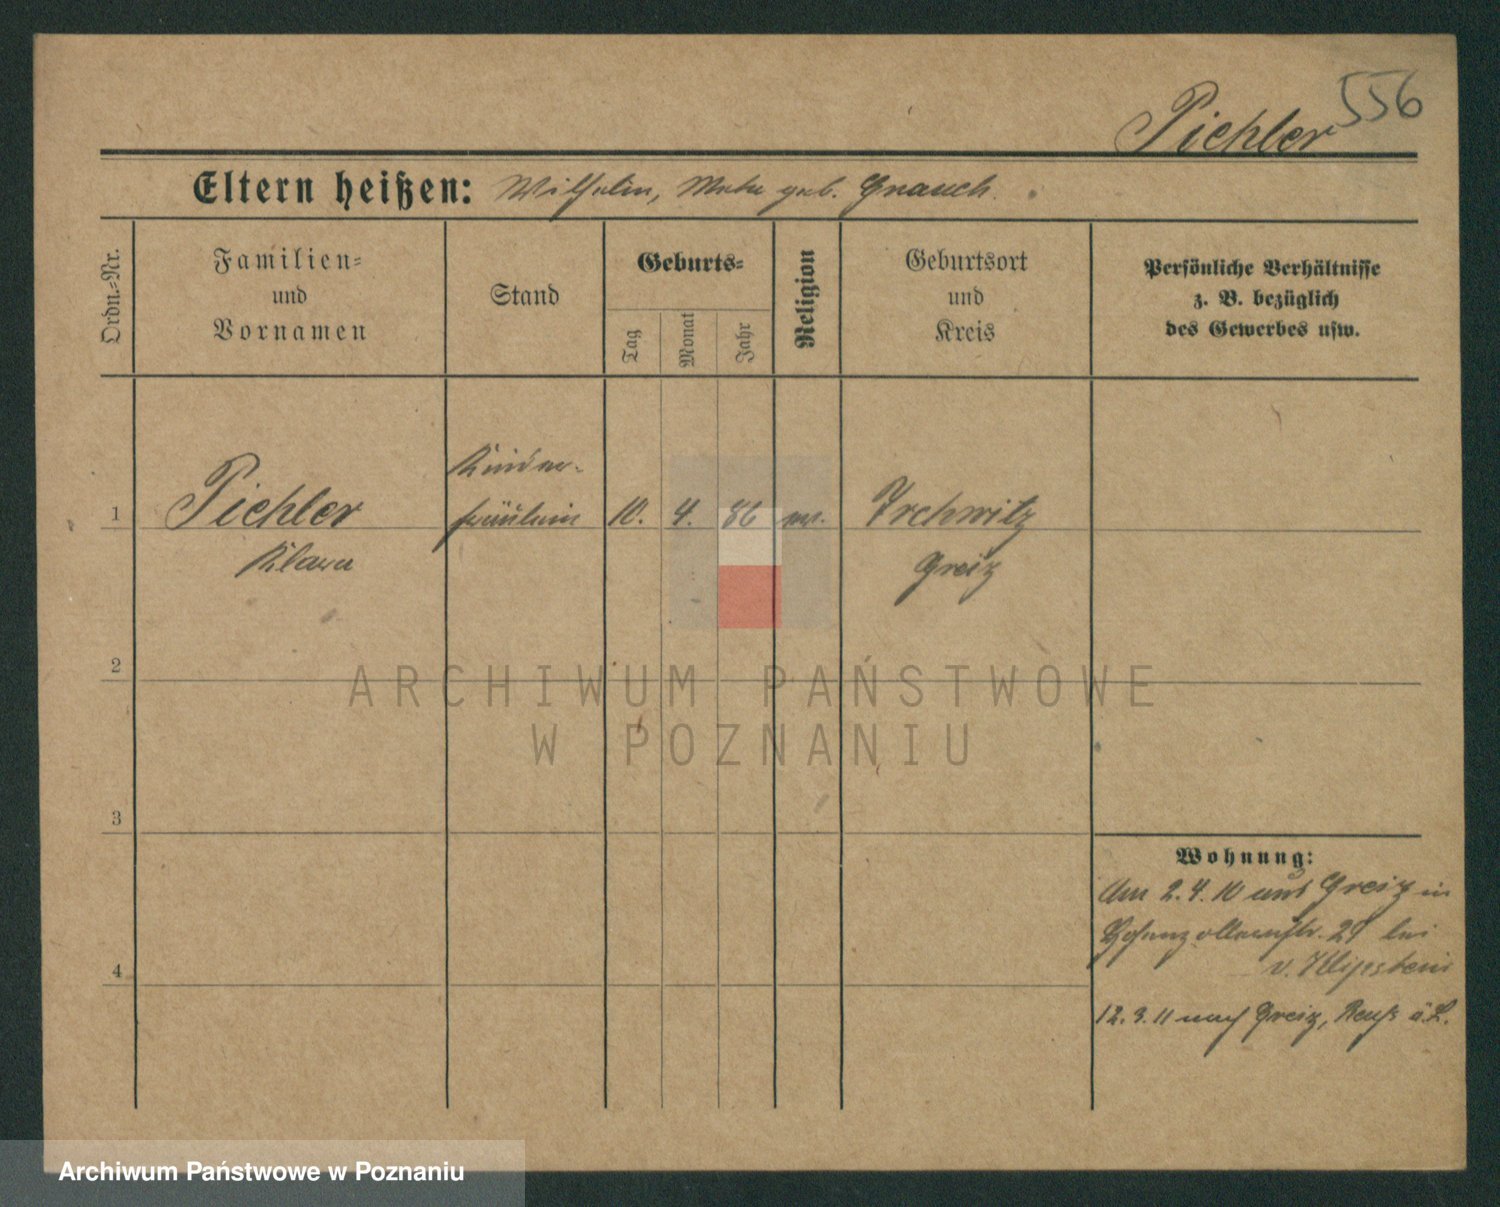 556
Pichler
Eltern heißen: Wilhelm, geb. Gnauck.
Ordn.=Nr.
Familien=
und
Vornamen
Stand
Geburts=
Tag
Monat
Jahr
Religion
Geburtsort
und
Kreis
Persönliche Verhältnisse
z. B. bezüglich
des Gewerbes usw.
Kinder-
1 Pichler fräulein 10. 4. 86 ev. Irchwitz
Klara Greiz
2
ARCHIWUM PAŃSTWOWE
W POZNANIU
3
Wohnung:
Am 2. 4. 10 aus Greiz in
Hohenzollernstr. bei
v. Klipstein
4
12. 3. 11 nach Greiz, Reuß ä. L.
Archiwum Państwowe w Poznaniu